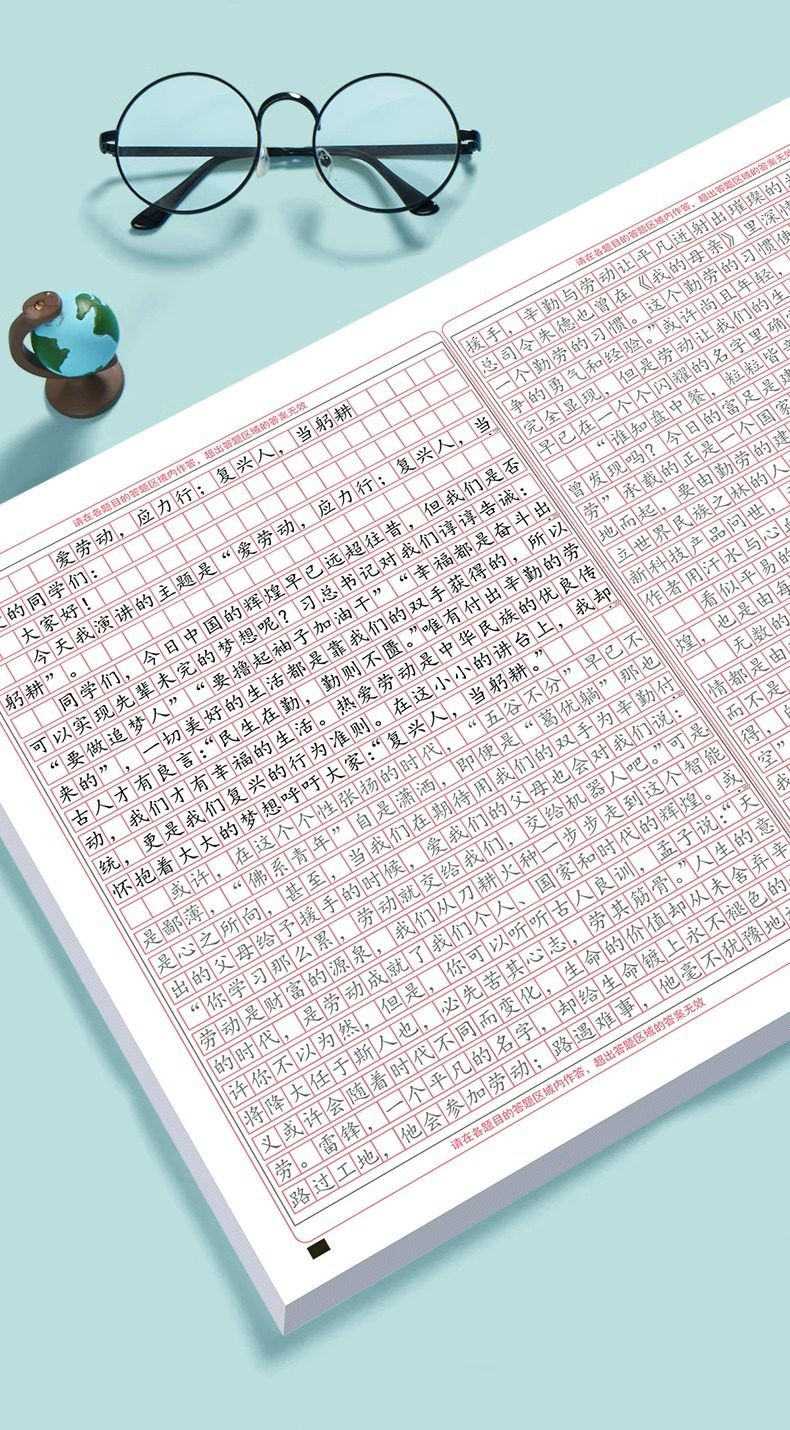 请在各题目的答题区域内作答，超出答题区域的答案无效
爱劳动，应力行；复兴人，当躬耕
的同学们：
大家好！
今天我演讲的主题是“爱劳动，应力行；复兴人，当
躬耕”。
同学们，今日中国的辉煌早已远超往昔，但我们是否
可以实现先辈未完的梦想呢？习总书记对我们谆谆告诫：
“要做追梦人”“要撸起袖子加油干”“幸福都是奋斗出
来的”，一切美好的生活都是靠我们的双手获得的，所以
古人才有良言：“民生在勤，勤则不匮。”唯有付出辛勤的劳
动，我们才有幸福的生活。热爱劳动是中华民族的优良传
统，更是我们复兴的行为准则。在这小小的讲台上，我却
怀抱着大大的梦想呼吁大家：“复兴人，当躬耕。”
或许，在这个个性张扬的时代，“五谷不分”早已不
是鄙薄，“佛系青年”自是潇洒，即便是“葛优躺”那也
是心之所向，甚至，当我们在期待用我们的双手为辛勤付
出的父母给予援手的时候，爱我们的父母也会对我们说：
“你学习那么累，劳动就交给我们，交给机器人吧。”可是
劳动是财富的源泉，我们从刀耕火种一步步走到这个智能
的时代，是劳动成就了我们个人、国家和时代的辉煌。或
许你不以为然，但是，你可以听听古人良训，孟子说：“天
将降大任于斯人也，必先苦其心志，劳其筋骨。”人生的意
义或许会随着时代不同而变化，生命的价值却从未舍弃辛
劳。雷锋，一个平凡的名字，却给生命镀上永不褪色的
路过工地，他会参加劳动；路遇难事，他毫不犹豫地
请在各题目的答题区域内作答，超出答题区域的答案无效
请在各题目的答题区域内作答，超出答题区域的答案无效
援手，辛勤与劳动让平凡迸射出璀璨的
总司令朱德也曾在《我的母亲》里深情
一个勤劳的习惯。这个勤劳的习惯使
争的勇气和经验。”或许尚且年轻，
完全显现，但是劳动让我们的生
早已在一个个闪耀的名字里确
“谁知盘中餐，粒粒皆
曾发现吗？今日的富足是建
劳”承载的正是一个国家
地而起，要由勤劳的建
立世界民族之林的人
新科技产品问世，
作者用汗水与心的
看似平易的
煌，也是由每
无数的
情都是由
而不是
得，
空”
我